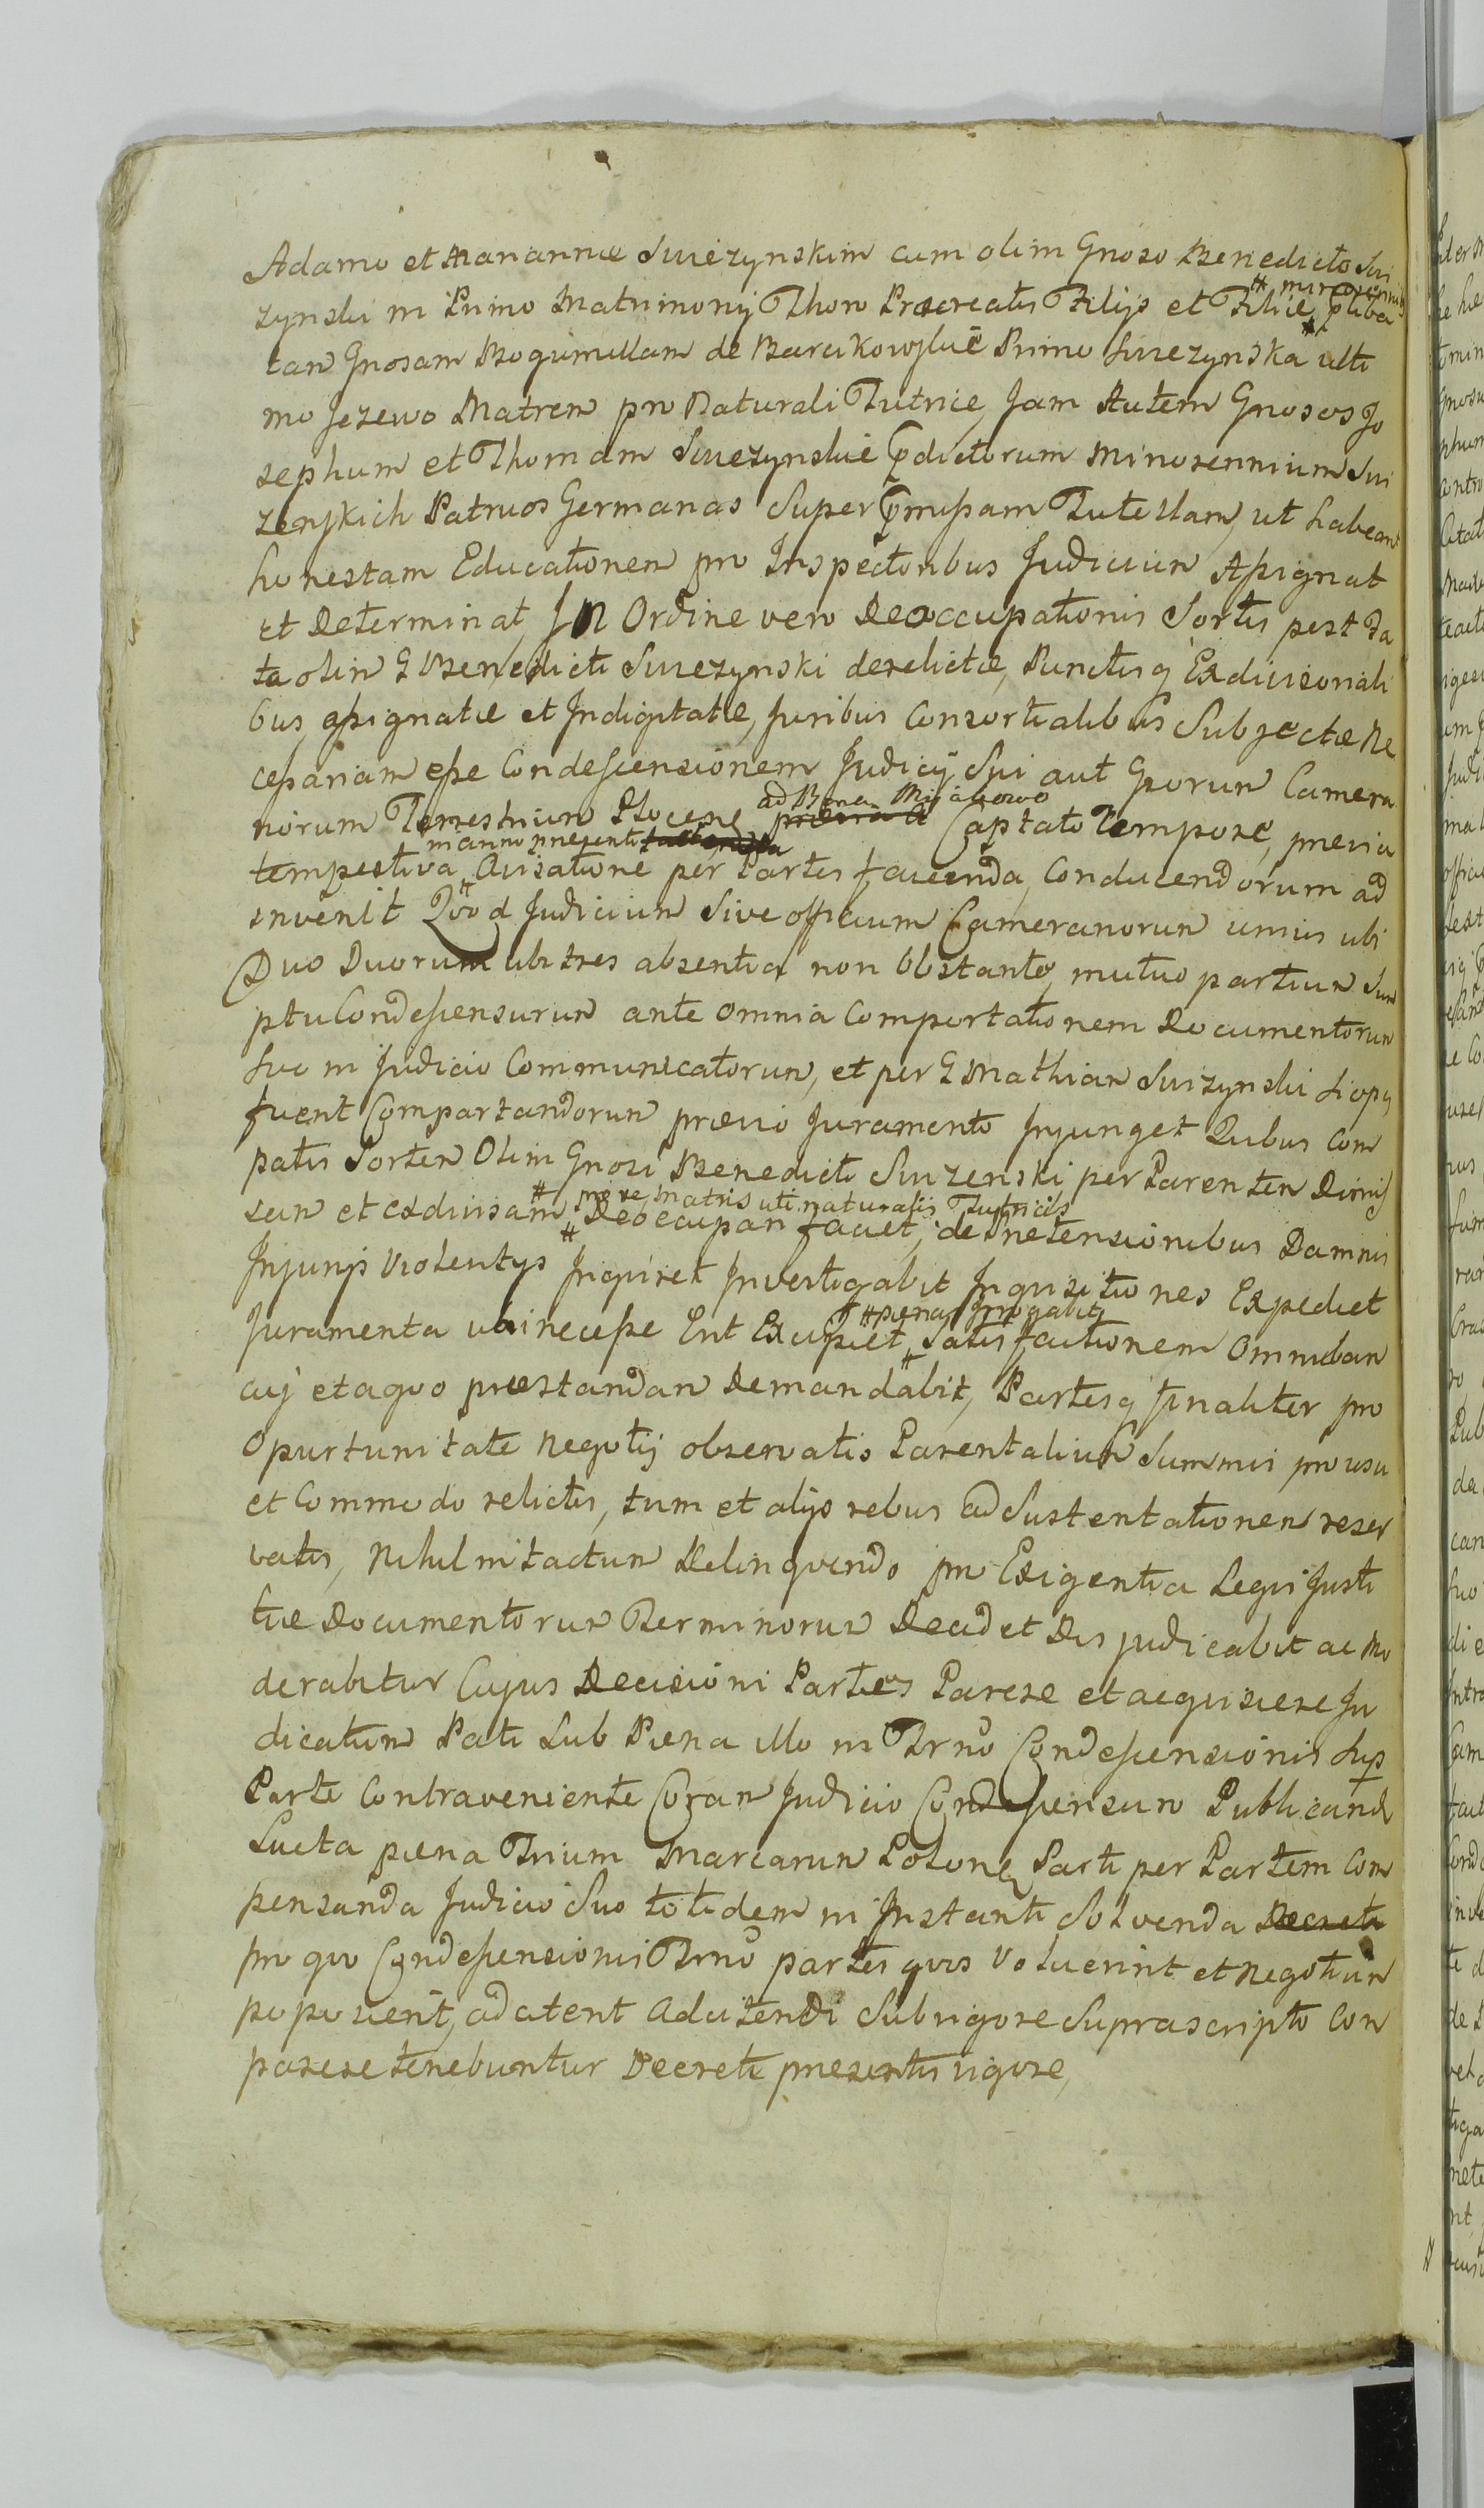 Adamo et Mariannæ Swiezynskim cum olim Gnoso Benedicto Swi
zynski in Primo Matrimonij Thoro Procreatis Filijs et Filiæ # minorennis
tam Gnosam Bogumillam de Barcikowskie Primo Swiezynska ulti
mo Jezewo Matrem pro Naturali Tutrice, Jam Autem Gnosos Jo
sephum et Thomam Swiezynskie pdictorum Minorennium Swi
zenskich Patruos Germanos Super pmissam Tutellam, ut habeant
honestam Educationem pro Inspectoribus Judicium Assignat
et Determinat, In Ordine vero Deoccupationis Sortis post Fa
ta olim G Benedicti Swiezynski derelictæ, Punctisq Exdivisionali
bus, assignatæ et Indigitatæ, Juribus Consortialibus Subjectæ Ne
cessariam esse Condescensionem Judicij Sui aut Gsorum Camera
riorum Terrestrium Plocens ad Bona Captato Tempore, previa
tempestiva # in anno presenti Avisatione per Partes facienda, Conducendorum ad
invenit Quod Judicium Sive officium Camerariorum unius ubi
Duo Duorum ubi tres absentia non Obstante, mutuo partium Sum
ptu Condescensurum ante omnia Comportationem Documentorum
huc in Judicio Communicatorum, et per G Mathiam Swizynski si opus
fuerit Comportandorum prævio Juramento Injunget Quibus Com
patis Sortem Olim Gnosi Benedicti Swizenski per Parentem Dimis
sam et exdivisam # matris uti naturalis Tutricis Deoccupari faciet, de Prætensionibus Damnis
Injurijs Violentijs Inquiret Investigabit Inquisitiones Expediet
Juramenta ubi necesse Erit Excipiet # pænas Irrogabit Satisfactionem Omnibus
cuj et a quo præstandam Demandabit, Partesq finaliter pro
Opurtunitate Negotij observatis Parentalium Summis pro usu
et Commodo relictis, tum et alijs rebus ad Sustentationem reser
vatis, Nihil intactum Delinquendo pro Exigentia Legis Justi
tiæ Documentorum Terminorum Decidet Disjudicabit ac Mo
derabitur Cujus Decisioni Partes Parere et acquiescere Ju
dicatum Pati Sub Pæna illo in Trno Condescensionis Sup
Parte Contraveniente Coram Judicio Condescensuro Publicand
Lucta pæna Trium Marcarum Polonq Parti per Partem Com
pensanda Judicio Suo totidem in Instanti Solvenda Decreti
pro quo Condescensionis Trno partes quos Voluerint et Negotium
poposcerit, ad atent Adcitendi Sub rigore Suprascripto Com
parere tenebuntur Decreti præsentis vigore,